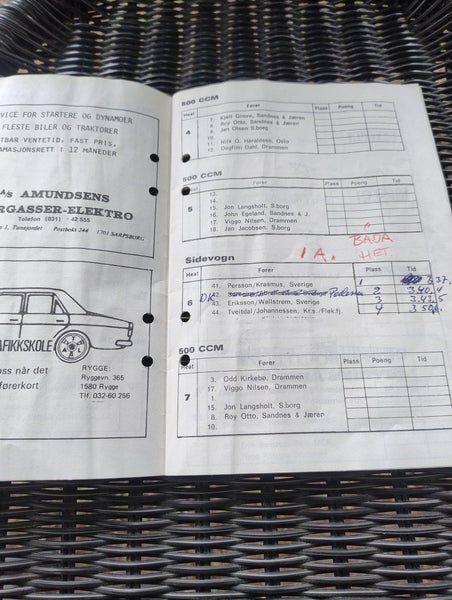 VICE FOR STARTERE OG DYNAMOER
FLESTE BILER OG TRAKTORER
TBAR VENTETID. FAST PRIS.
AMASJONSRETT I 12 MÅNEDER
As AMUNDSENS
RGASSER-ELEKTRO
Telefon (031) - 42 555
1, Tunejordet Postboks 244 1701 SARPSBORG
AFIKKSKOLE
oss når det
førerkort
RYGGE:
Ryggevn. 365
1580 Rygge
Tlf. 032-60 256
500 CCM
Heat Fører Plass Poeng Tid
4
7. Kjell Gnore, Sandnes & Jæren
8. Roy Otto, Sandnes & Jæren
9. Jan Olsen S.borg
10.
11. Nils O. Haraldsen, Oslo
12. Dagfinn Dahl, Drammen
500 CCM
Heat Fører Plass Poeng Tid
5
13.
14.
15. Jon Langsholt, S.borg
16. John Egeland, Sandnes & J.
17. Viggo Nilsen, Drammen
18. Jan Jacobsen, S.borg
1 A. BAUA
HET.
Sidevogn
Heat Fører Plass Tid
6
41. Persson/Krasmus, Sverige 1 3.37.
DK 42. 2 3.40.4
43. Eriksson/Wallstrøm, Sverige 3 3.43.5
44. Tveitdal/Johannessen, Kr.s./Flek.fj. 4
500 CCM
Heat Fører Plass Poeng Tid
7
3. Odd Kirkebø, Drammen
17. Viggo Nilsen, Drammen
1.
15. Jon Langsholt, S.borg
8. Roy Otto, Sandnes & Jæren
10.